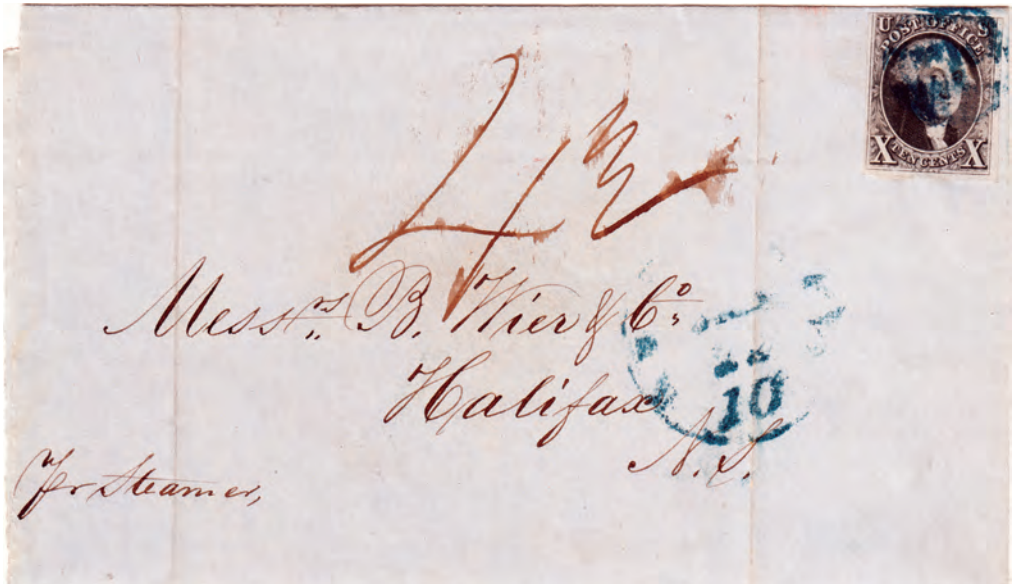 U S
POST OFFICE
X TEN CENTS X
4
Messrs. B. Wier & Co.
Halifax
10
N.S.
Per Steamer,